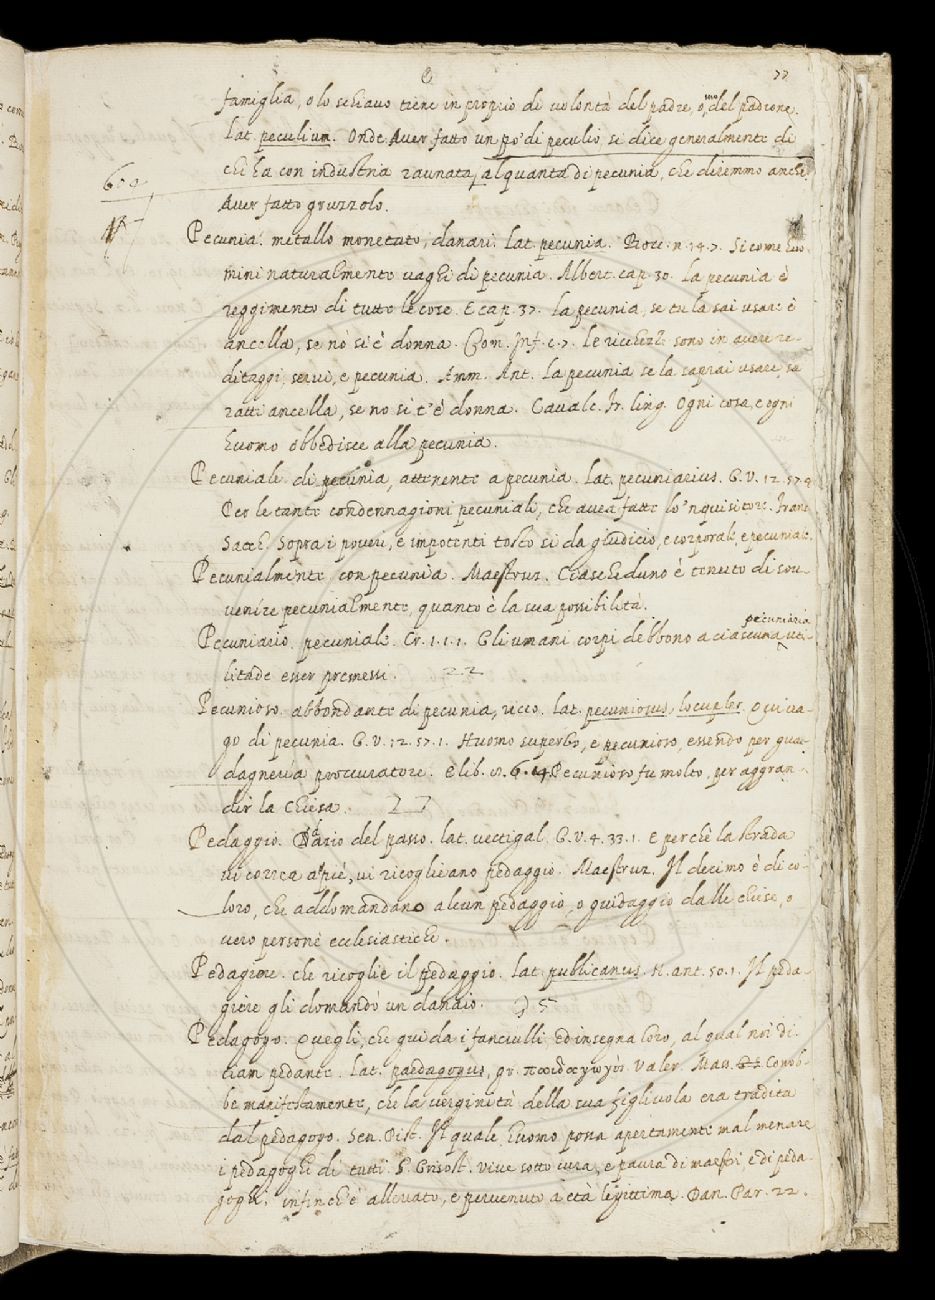 77
famiglia, o lo schiavo tiene in proprio di volontà del padre, o del padrone.
Lat. peculium. Onde Aver fatto un po' di peculio, si dice generalmente di
chi ha con industria raunata alquanta di pecunia, che diremmo anche
600
Aver fatto gruzzolo.
Pecunia. metallo monetato, danari. Lat. pecunia. Bocc. n. 14. 7. Si come huo-
mini naturalmente vaghi di pecunia. Albert. cap. 30. La pecunia è
reggimento di tutte le cose. E cap. 37. La pecunia, se tu la sai usare è
ancella, se nò si è donna. Com. Inf. c. 7. Le ricchezze sono in avere re-
ditaggi, servi, e pecunia. Amm. Ant. La pecunia se la saprai usare, sa
ratti ancella, se no si t'è donna. Cavalc. Fr. ling. Ogni cosa, e ogni
huomo obbedisce alla pecunia.
Pecuniale. di pecunia, attenente a pecunia. Lat. pecuniarius. G. V. 12. 57. 4
Per le tante condennagioni pecuniali, che avea fatte lo 'nquisitore. Franc.
Sacch. Sopra i poveri, e impotenti tosto si da giudicio, e corporale, e pecuniale.
Pecunialmente con pecunia. Maestruz. Ciascheduno è tenuto di sov-
venire pecunialmente, quanto è la sua possibilità.
pecuniaria
Pecuniario. pecuniale. Cr. 1. 1. 1. Gli umani corpi debbono a ciascuna uti-
litade esser premessi. 22
Pecunioso. abbondante di pecunia, ricco. Lat. pecuniosus, locuples.
go di pecunia. G. V. 12. 57. 1. Huomo superbo, e pecunioso, essendo per gua-
dagneria proccuratore. E lib. 6. 14. Pecunioso fu molto, per aggran-
dir la Chiesa. 27
Pedaggio. Dazio del passo. Lat. vectigal. G. V. 4. 33. 1. E perchè la strada
vi correa a piè, vi ricoglievano pedaggio. Maestruz. Il decimo è di co-
loro, che addomandano alcun pedaggio, o guidaggio dalle chiese, o
vero persone ecclesiastiche.
Pedagiere. che ricoglie il pedaggio. Lat. publicanus. N. ant. 50. 1. Il peda-
giere gli domandò un danaio. 5
Pedagogo. Quegli, che guida i fanciulli, ed insegna loro, al qual noi di-
ciam pedante. Lat. paedagogus, gr. παιδαγωγὸς. Valer. Mass. Conob-
be manifestamente, che la verginità della sua figliuola era tradita
dal pedagogo. Sen. Pist. Il quale huomo possa apertamente mal menare
i pedagoghi di tutti. S. Grisost. Vive sotto cura, e paura di maestri, e di peda-
goghi, infinch'è allevato, e pervenuto a età legittima. Dan. Par. 22.